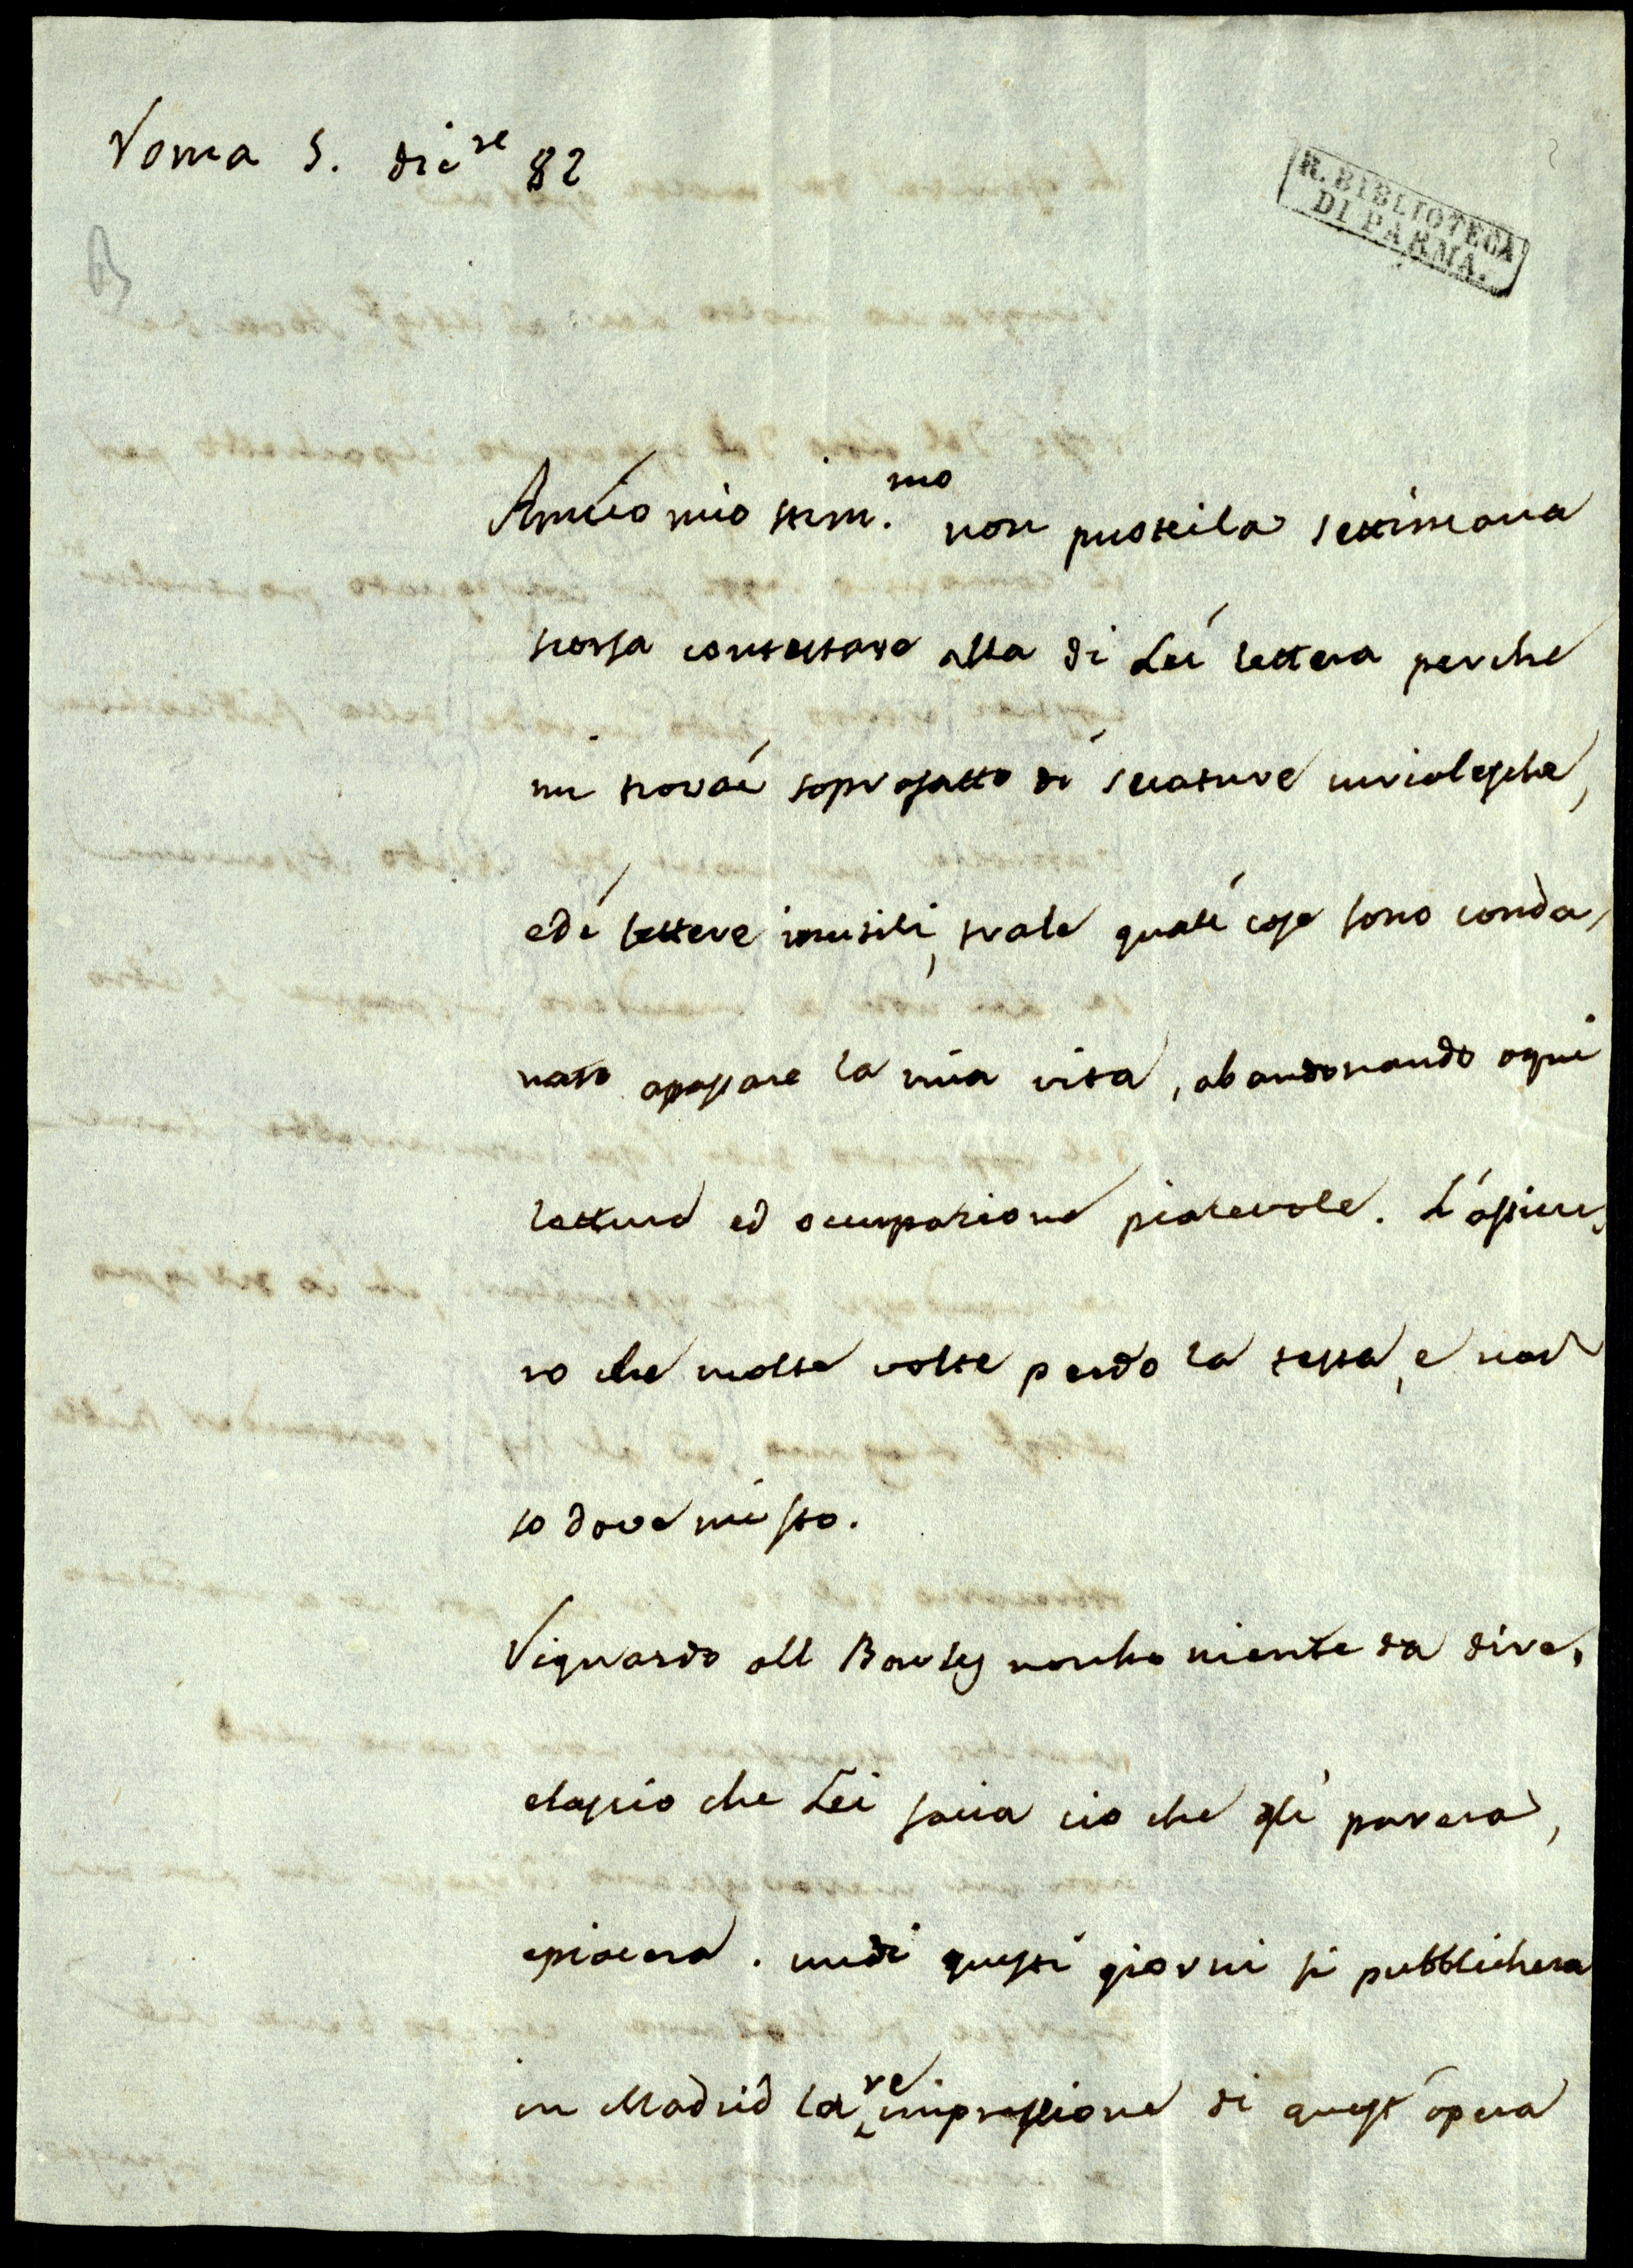 Roma 5. dic.re 82
R. BIBLIOTECA
DI PARMA.
Amico mio stim.mo non puotei la settimana
scorsa contestare alla di Lei lettera perche
mi trovai soprafatto di seccature curialesche,
edi lettere inutili, trale quali cose sono conda,
nato apassare la mia vita, abandonando ogni
lettura ed occupazione piacevole. L'assicu,
ro che molte volte perdo la testa, e non
so dove mi sto.
Riguardo all Bowles nonho niente da dire,
elascio che Lei facia cio che gli parerà,
epiacera. undi questi giorni si pubblichera
in Madrid la reimpressione di quest'opera